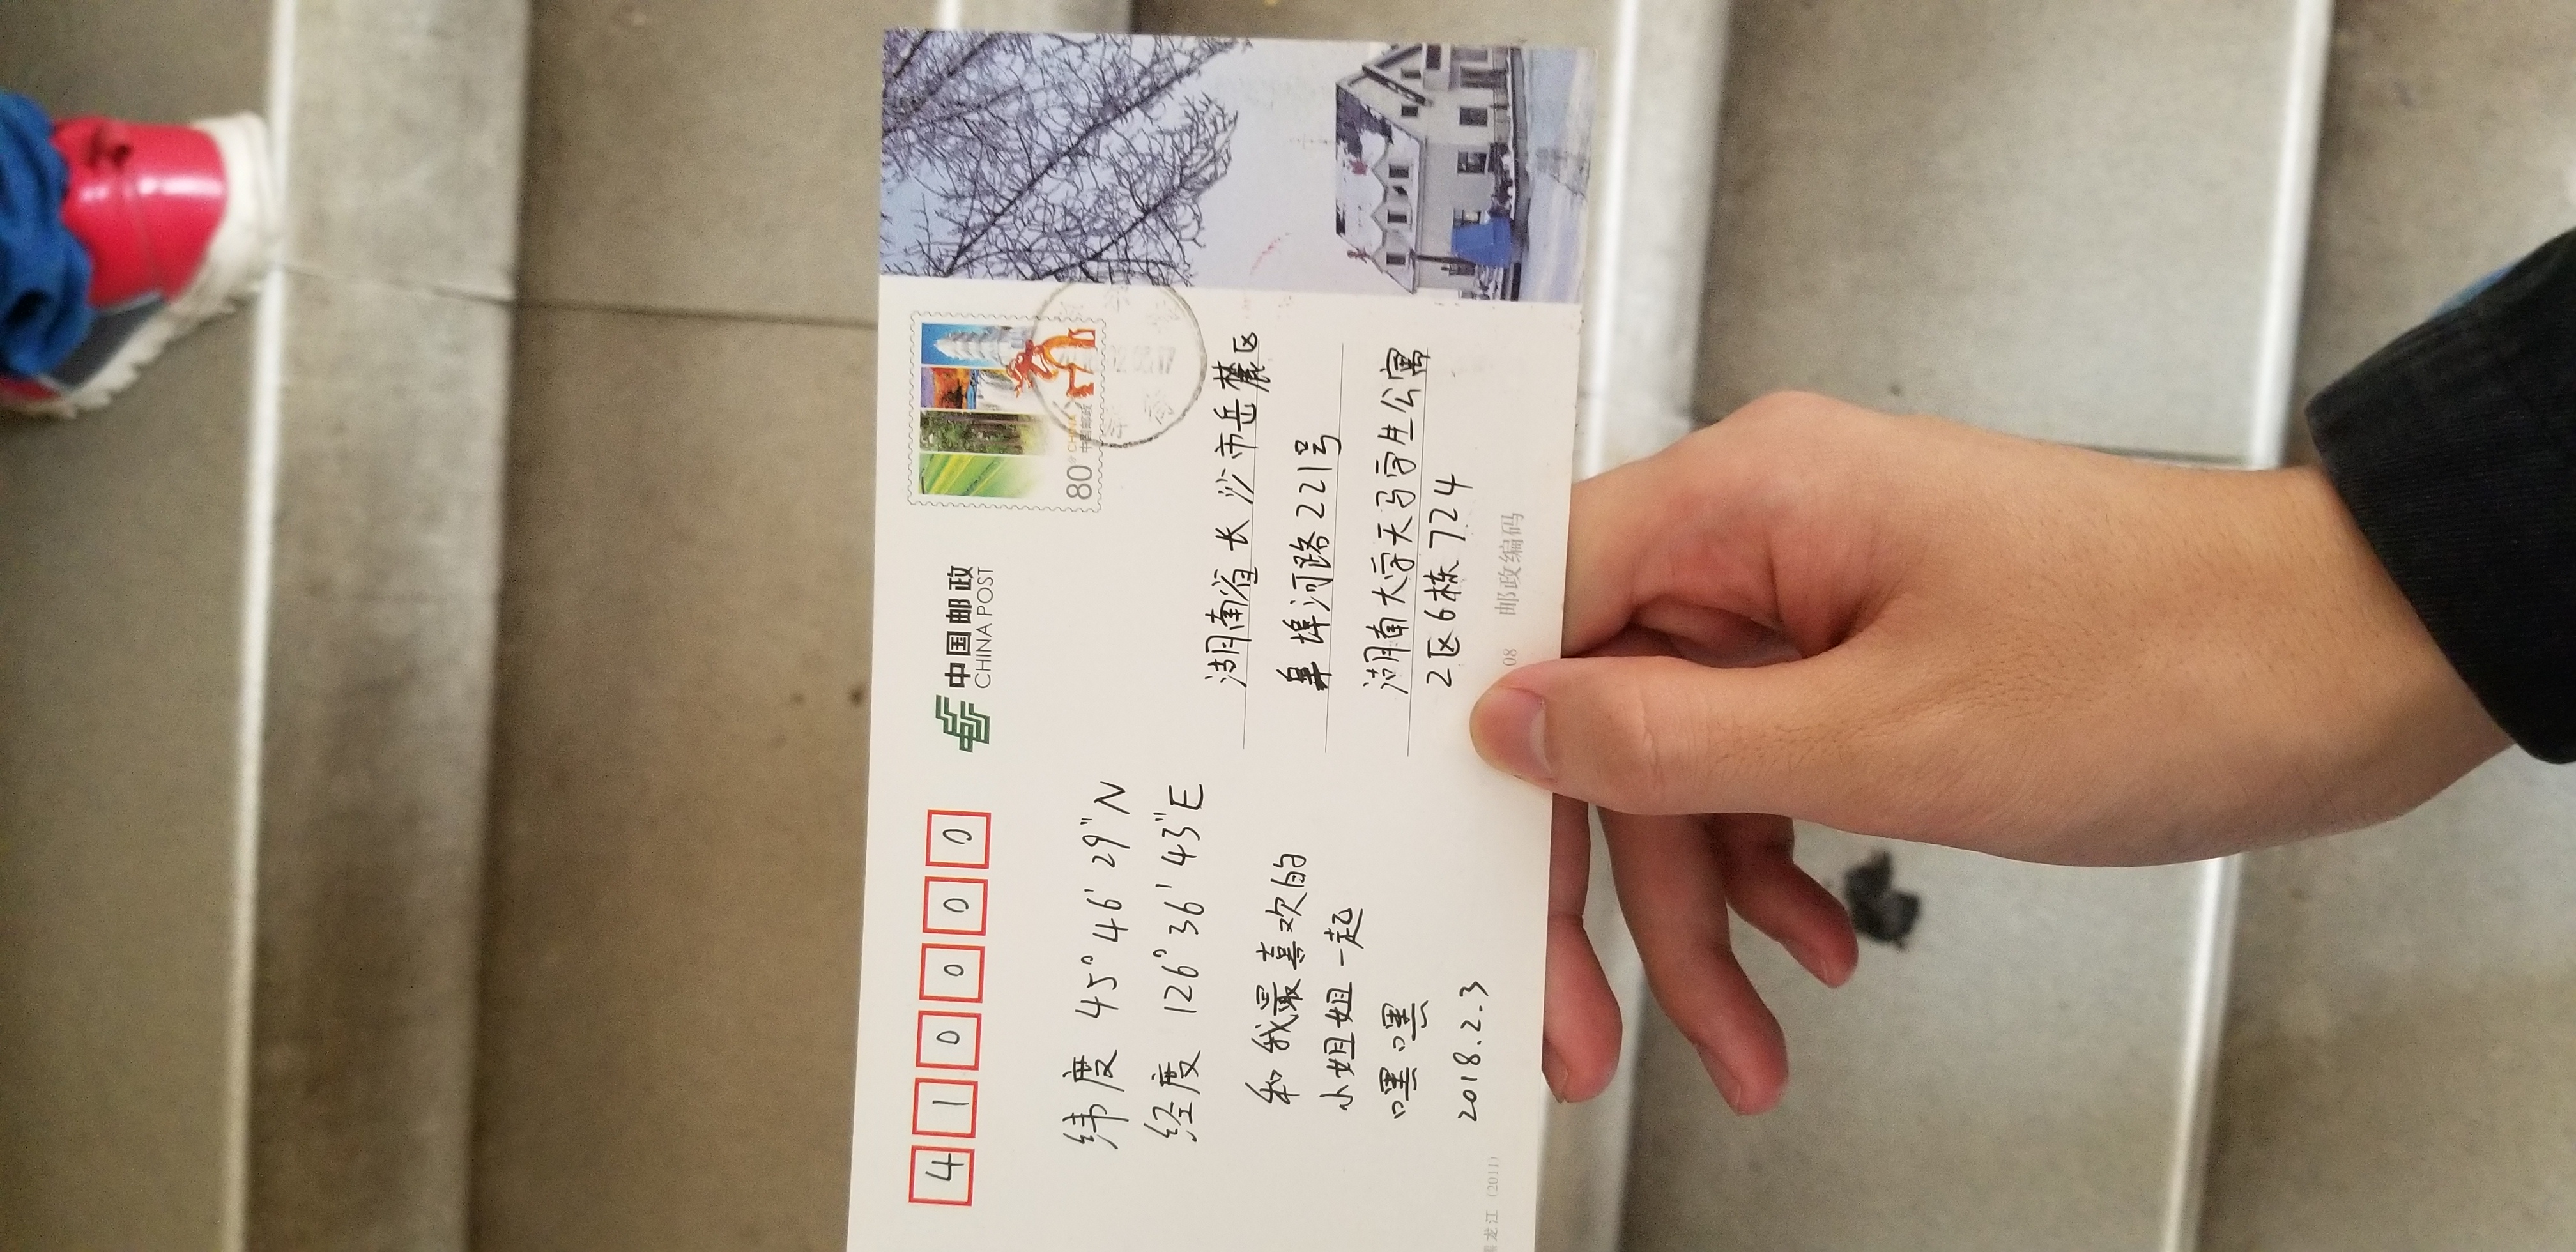 410000
中国邮政
CHINA POST
80分
CHINA
中国邮政
纬度 45°46'29"N
经度 126°36'43"E
和我最喜欢的
小姐姐一起
嘿嘿
2018.2.3
湖南省长沙市岳麓区
阜埠河路221号
湖南大学天马学生公寓
2区6栋724
龙江 (2011)
08 邮政编码